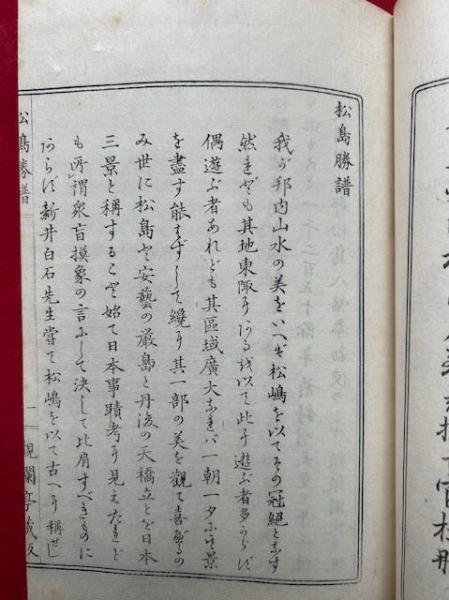 松島勝譜
我が邦内山水の美をいへば松嶋を以てその冠絶とす
然れども其地東陬にあるを以て此に遊ぶ者多からず
偶遊ぶ者あれども其區域廣大なれバ一朝一夕に其景
を盡す能はずして纔に其一部の美を觀て喜ぶもの
み世に松島と安藝の厳島と丹後の天橋立とを日本
三景と稱すること始て日本事蹟考に見えたれど
も所謂衆盲摸象の言にして決して比肩すべきものに
あらず新井白石先生嘗て松嶋を以て古へに稱せし
松島勝譜
一
觀瀾亭藏版